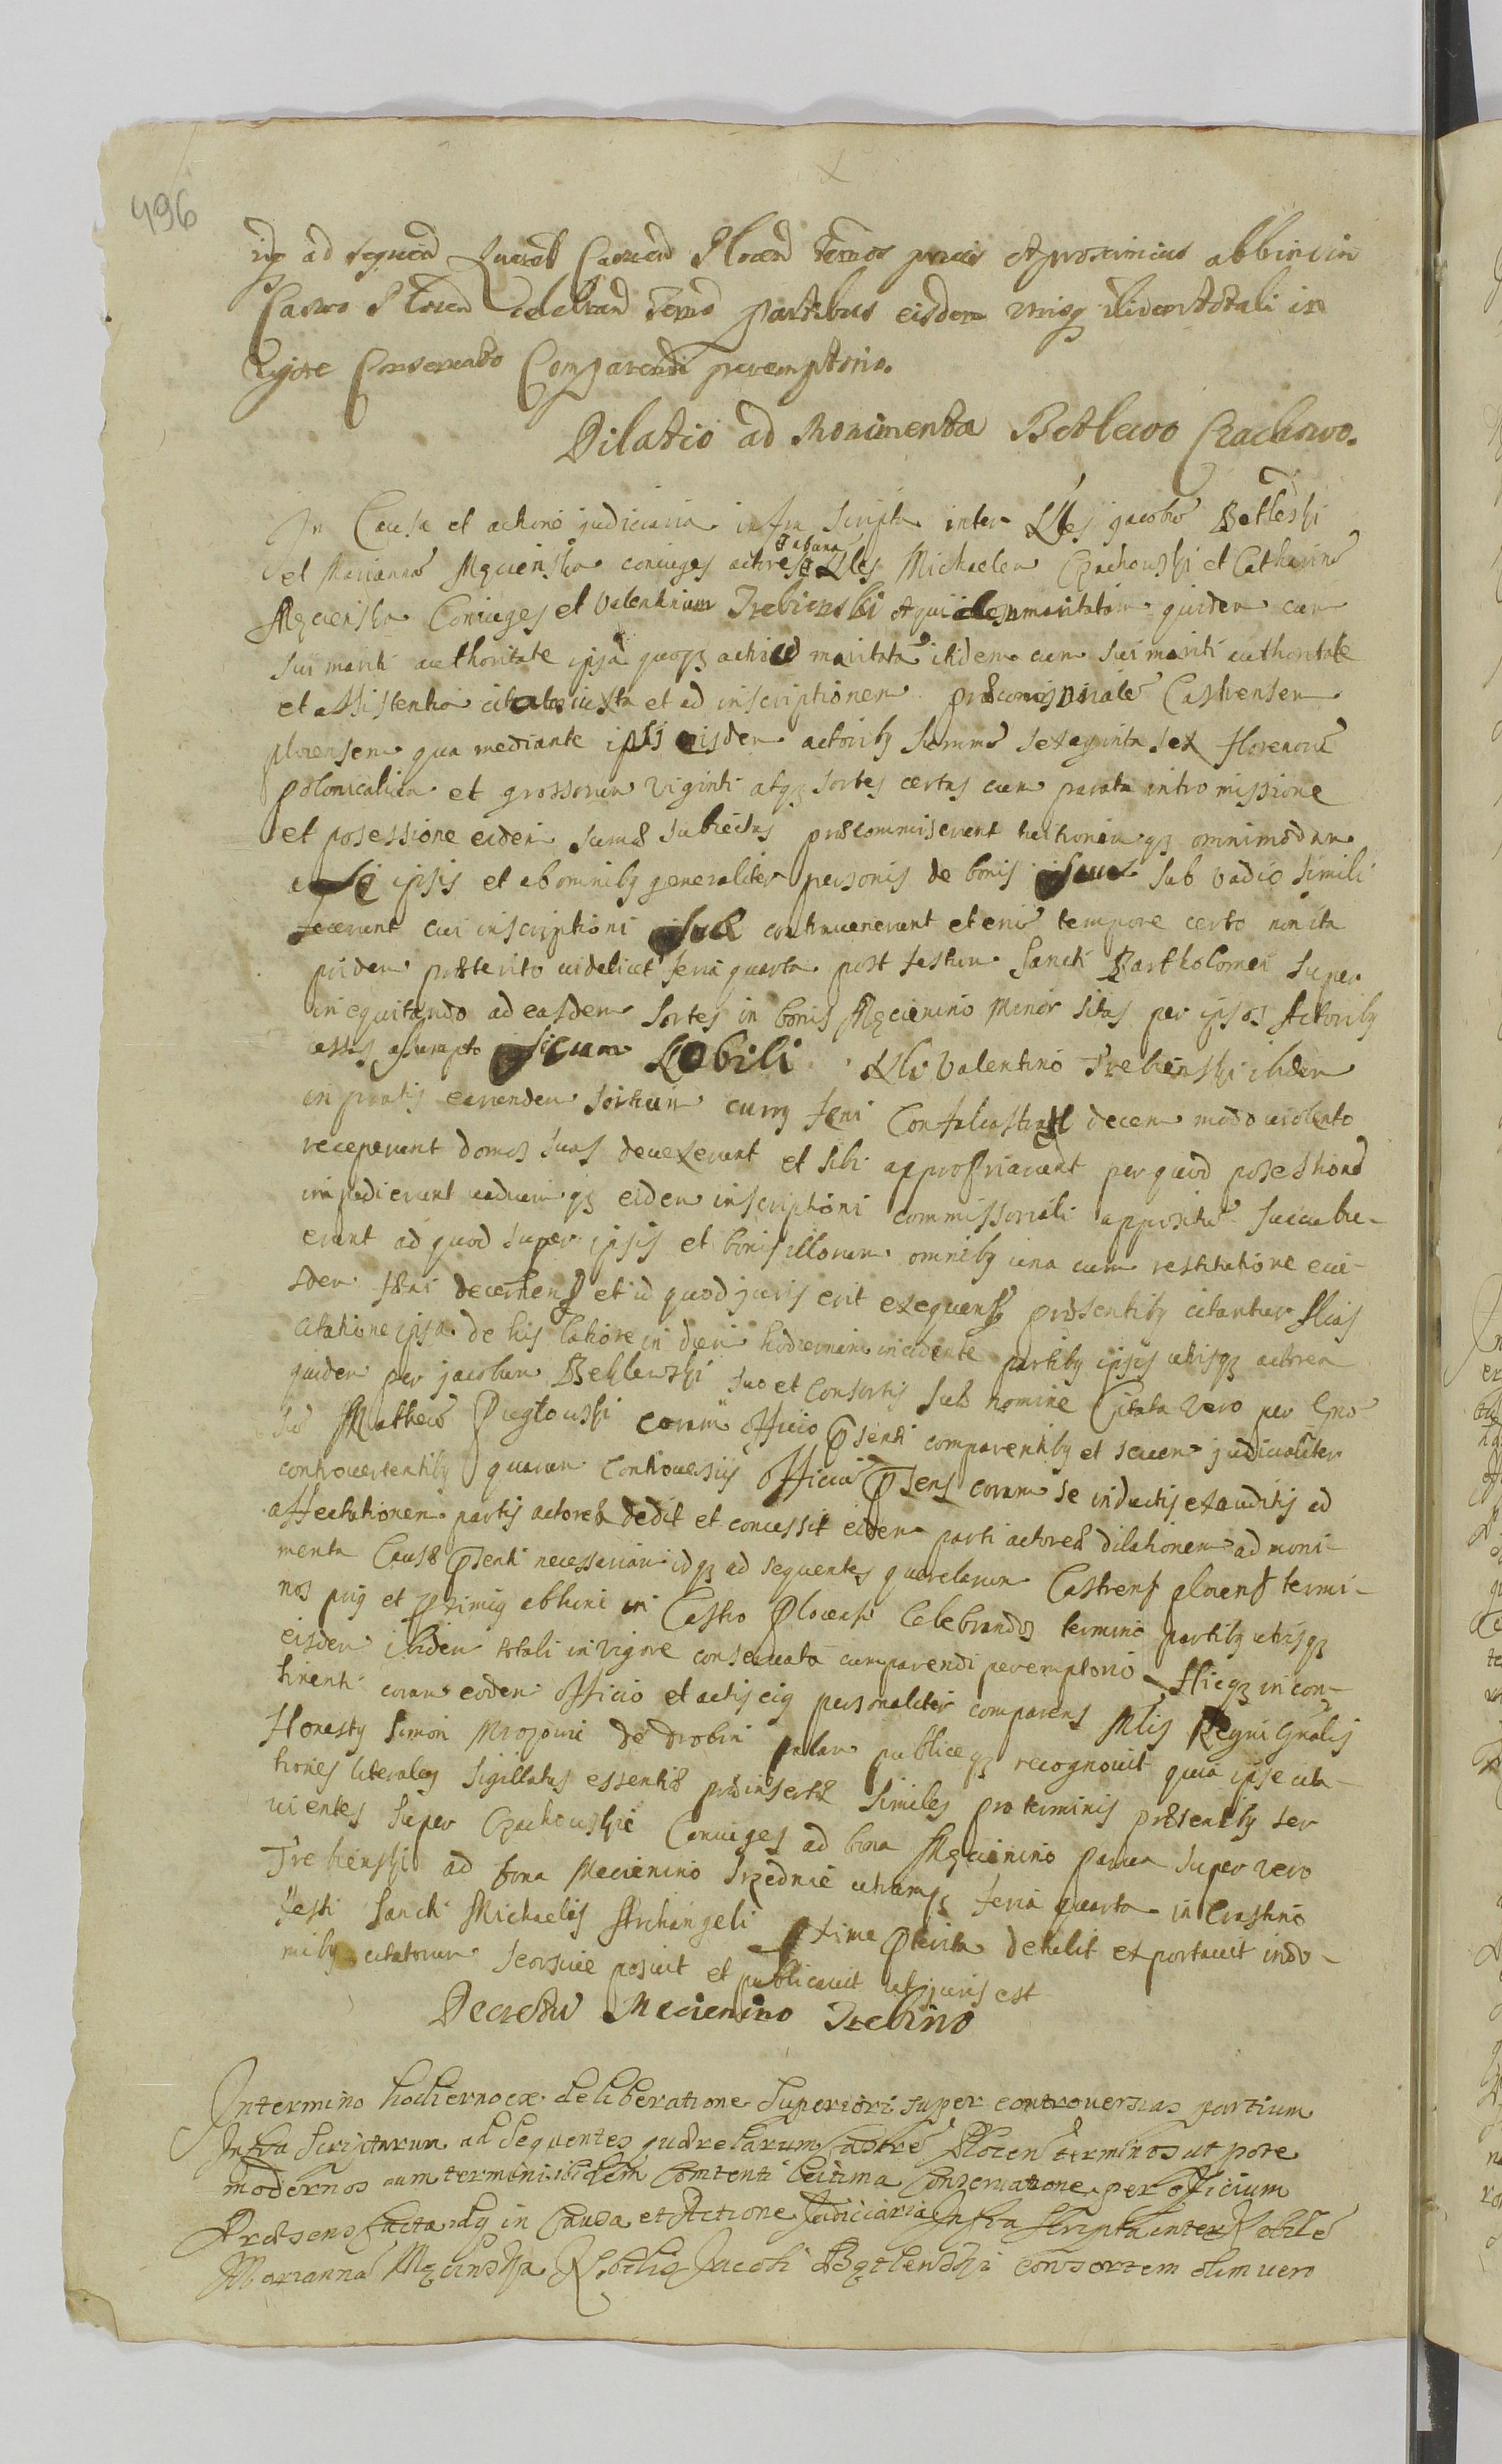 496
idq ad sequend Querel Castren Plocen Termos prius et proximius abhinc in
Castro Plocen celebrand Termo partibus eisdem utrisq ibidem totali in
vigore Conservato Comparendi peremptorio.
Dilatio ad Monimenta Betlewo Czachowo.
In Causa et actione judiciaria infra scripta inter Nles Jacobū Betleski
et Mariannā Mącienska coniuges actores et Nles Michaelem Czachowski et Catharinā
Mącienska Coniuges et Valentinum Trebienski maritatam quidem cum
sui mariti authoritate ipsā quoqz maritatā itidem cum sui mariti authoritate
et assistentia citatos iuxta et ad inscriptionem Castrensem
plocensem qua mediante ipsis eisdem actoribq summā sexaginta sex florenorū
polonicaliũ et grossorum viginti atqz sortes certas cum parata intromissione
et posessione eidem sumæ subiectas præcommiserunt tuitionemqz omnimodam
a se ipsis et ab omnibq generaliter personis de bonis sub vadio simili
fecerunt cui inscriptioni contravenerunt etenī tempore certo non ita
pridem præterito videlicet feria quarta post festum Sancti Bartholomei super
inequitando ad easdem sortes in bonis Mącienino Minor sitas per ipsos Actoribq
assumpto sicum Nobili Nli Valentino Trebienski ibidem
in pratis earundem sortium currq feni decem modo violento
receperunt domos suas devexerunt et sibi appropriarunt per quod posessionē
impedierunt vadiumqz eidem inscriptioni commissoriali appositū succubu-
erunt ad quod super ipsis et bonis illorum omnibq una cum restitutione eius-
dem fæni decernens et id quod juris erit exequens præsentibq citantur
citatione ipsa de his latiore in diem hodiernam incidente partibq ipsis utrisqz actorea
quidem per Jacobum Betlewski suo et Consortis suæ nomine Citata vero per Gnō
sū Matheū coram officio psenti comparentibq et secum judicialiter
controvertentibq quarum controversiis officiū psens coram se inductis exauditis ad
affectationem partis actoreæ dedit et concessit eidem parti actoreæ dilationem ad moni-
menta Causæ psenti necessariam idqz ad sequentes querelarum Castrens plocens termi-
nos priq et pximiq abhinc in Castro Plocensi Celebrandos termino partibq utrisqz
eisdem ibidem totali in vigore conservata comparendi peremptorio Hicqz in con-
tinenti coram eodem officio et actis eiq personaliter comparens Mlis Regni Gnalis
Honestq Simon Mrozowi de Drobin palam publiceqz recognovit quia ipse cita-
tiones literales sigillatas essentiæ præinsertæ similes pro terminis præsentibq ser
vientes super Czachowskie Coniuges ad bona Mącienino parva super vero
Trebienski ad bona Mącienino Srzednie utramqz feria quarta in Crastino
festi Sancti Michaelis Archangeli pxime pterita detulit exportavit in do-
mibq citatorum seorsive posuit et publicavit ut juris est
Decretū Mącienino Trebino
In termino hodierno ex deliberatione superiori super controversias partium
Infra Scriptarum ad Sequentes quærelarum Castrē Plocen terminos ut pote
modernos cum termini ibidem Contenti Conservatione per officium
Præsens facta in Causa et Actione Judiciaria Infra Scripta inter Nobilē
Mariannā Mącinska Nobiliq Jacobi Bętlewski consortem olim vero